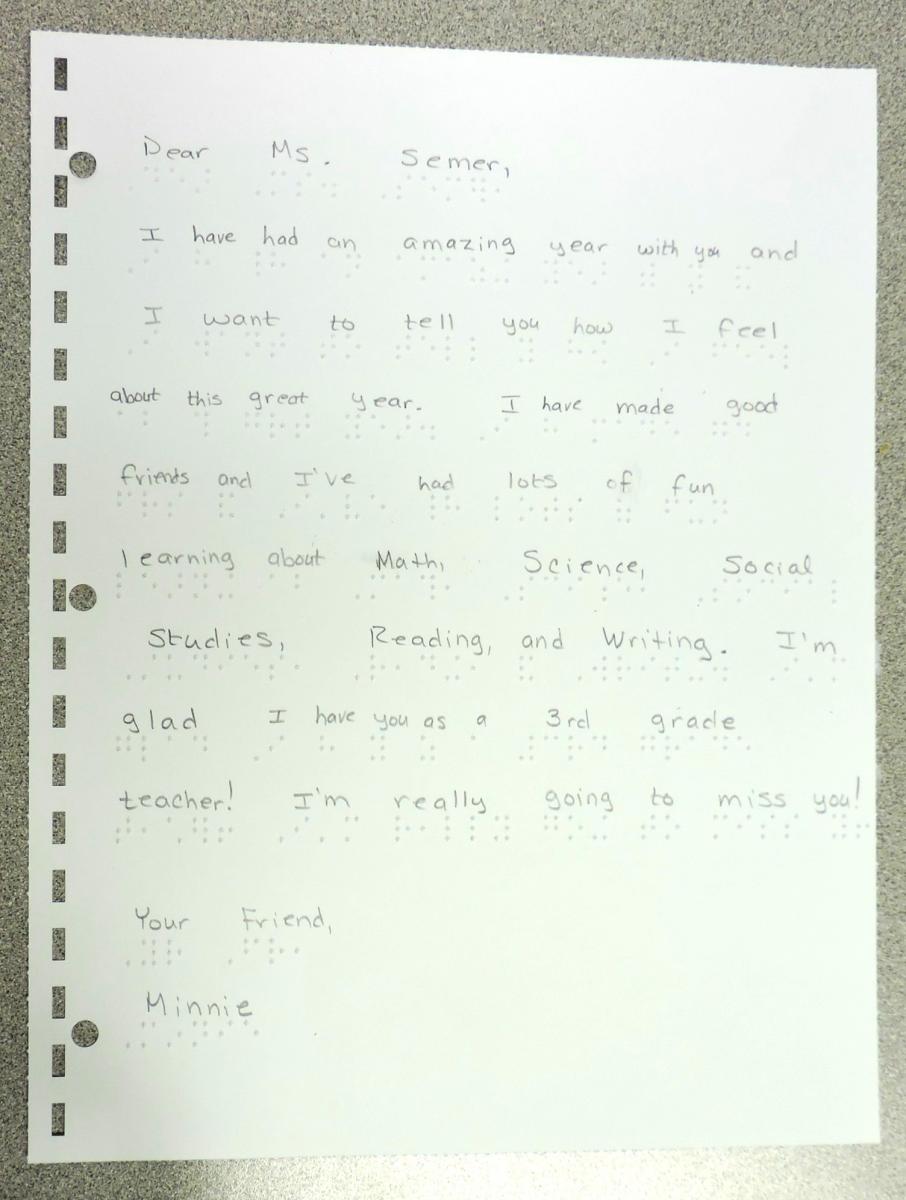 Dear Ms. Semer,
I have had an amazing year with you and
I want to tell you how I feel
about this great year. I have made good
friends and I've had lots of fun
learning about Math, Science, Social
Studies, Reading, and Writing. I'm
glad I have you as a 3rd grade
teacher! I'm really going to miss you!
Your Friend,
Minnie